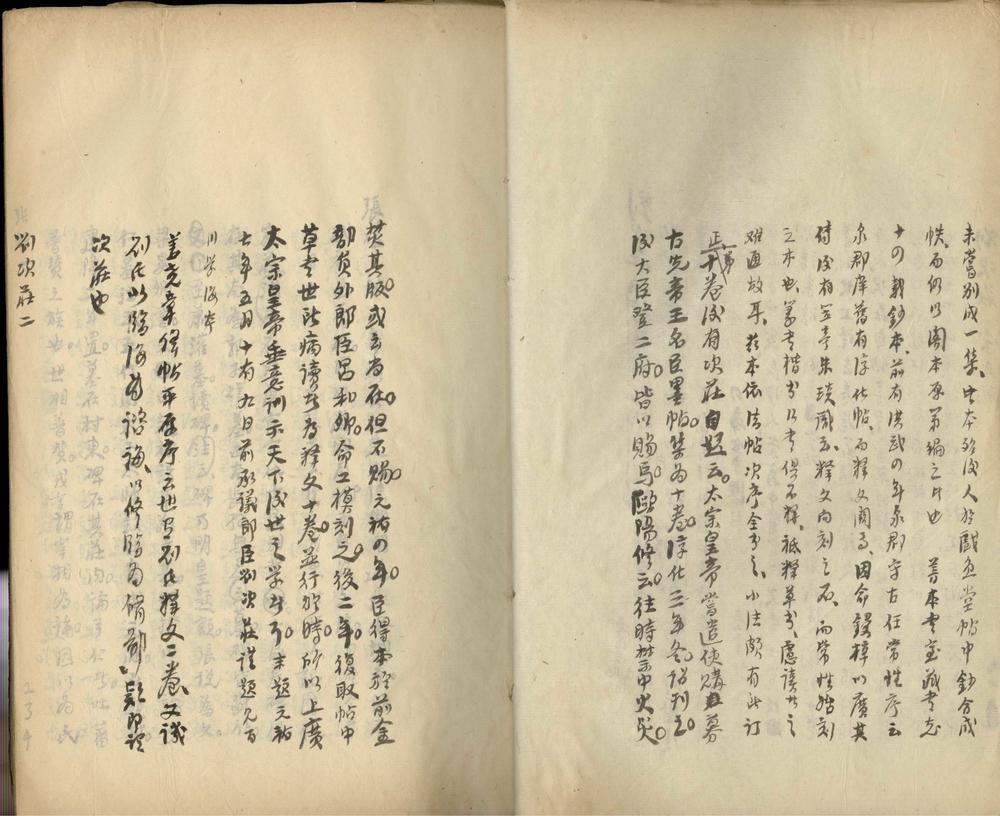 未嘗別成一集、此本殆後人於戲魚堂帖中鈔合成
帙、而仍以閣本原第編之者也　善本書室藏書志
十四載鈔本、前有洪武四年泉郡守古任常性序云
泉郡庠舊有淳化帖、而釋文闕焉、因命鋟梓以廣其
傳後有空
之本也篆書楷書行書俱不釋、祗釋草書、慮讀者之
難通故耳、於本依法帖次序全書之、小注頗有考訂
正、第十卷後有次莊自題云。太宗皇帝嘗遣使購募
古先帝王名臣墨帖集為十卷。淳化三年冬詔刊之。
後大臣登二府。皆以賜焉。歐陽修云。往時禁中火災。
焚其版或云尚在。但不賜。元祐四年。臣得本於前金
部員外郎臣呂和卿。命工模刻之。後二年。復取帖中
草書世所病讀者為釋文十卷。並行於時。所以上廣
太宗皇帝垂意訓示天下後世之學者。末題元祐
七年五月十有九日前承議郎臣劉次莊謹題
川學海本
姜堯章絳帖平原序云世有劉氏釋文二卷、又議
劉氏以臨海為諮議、以修
次莊也
劉次莊二